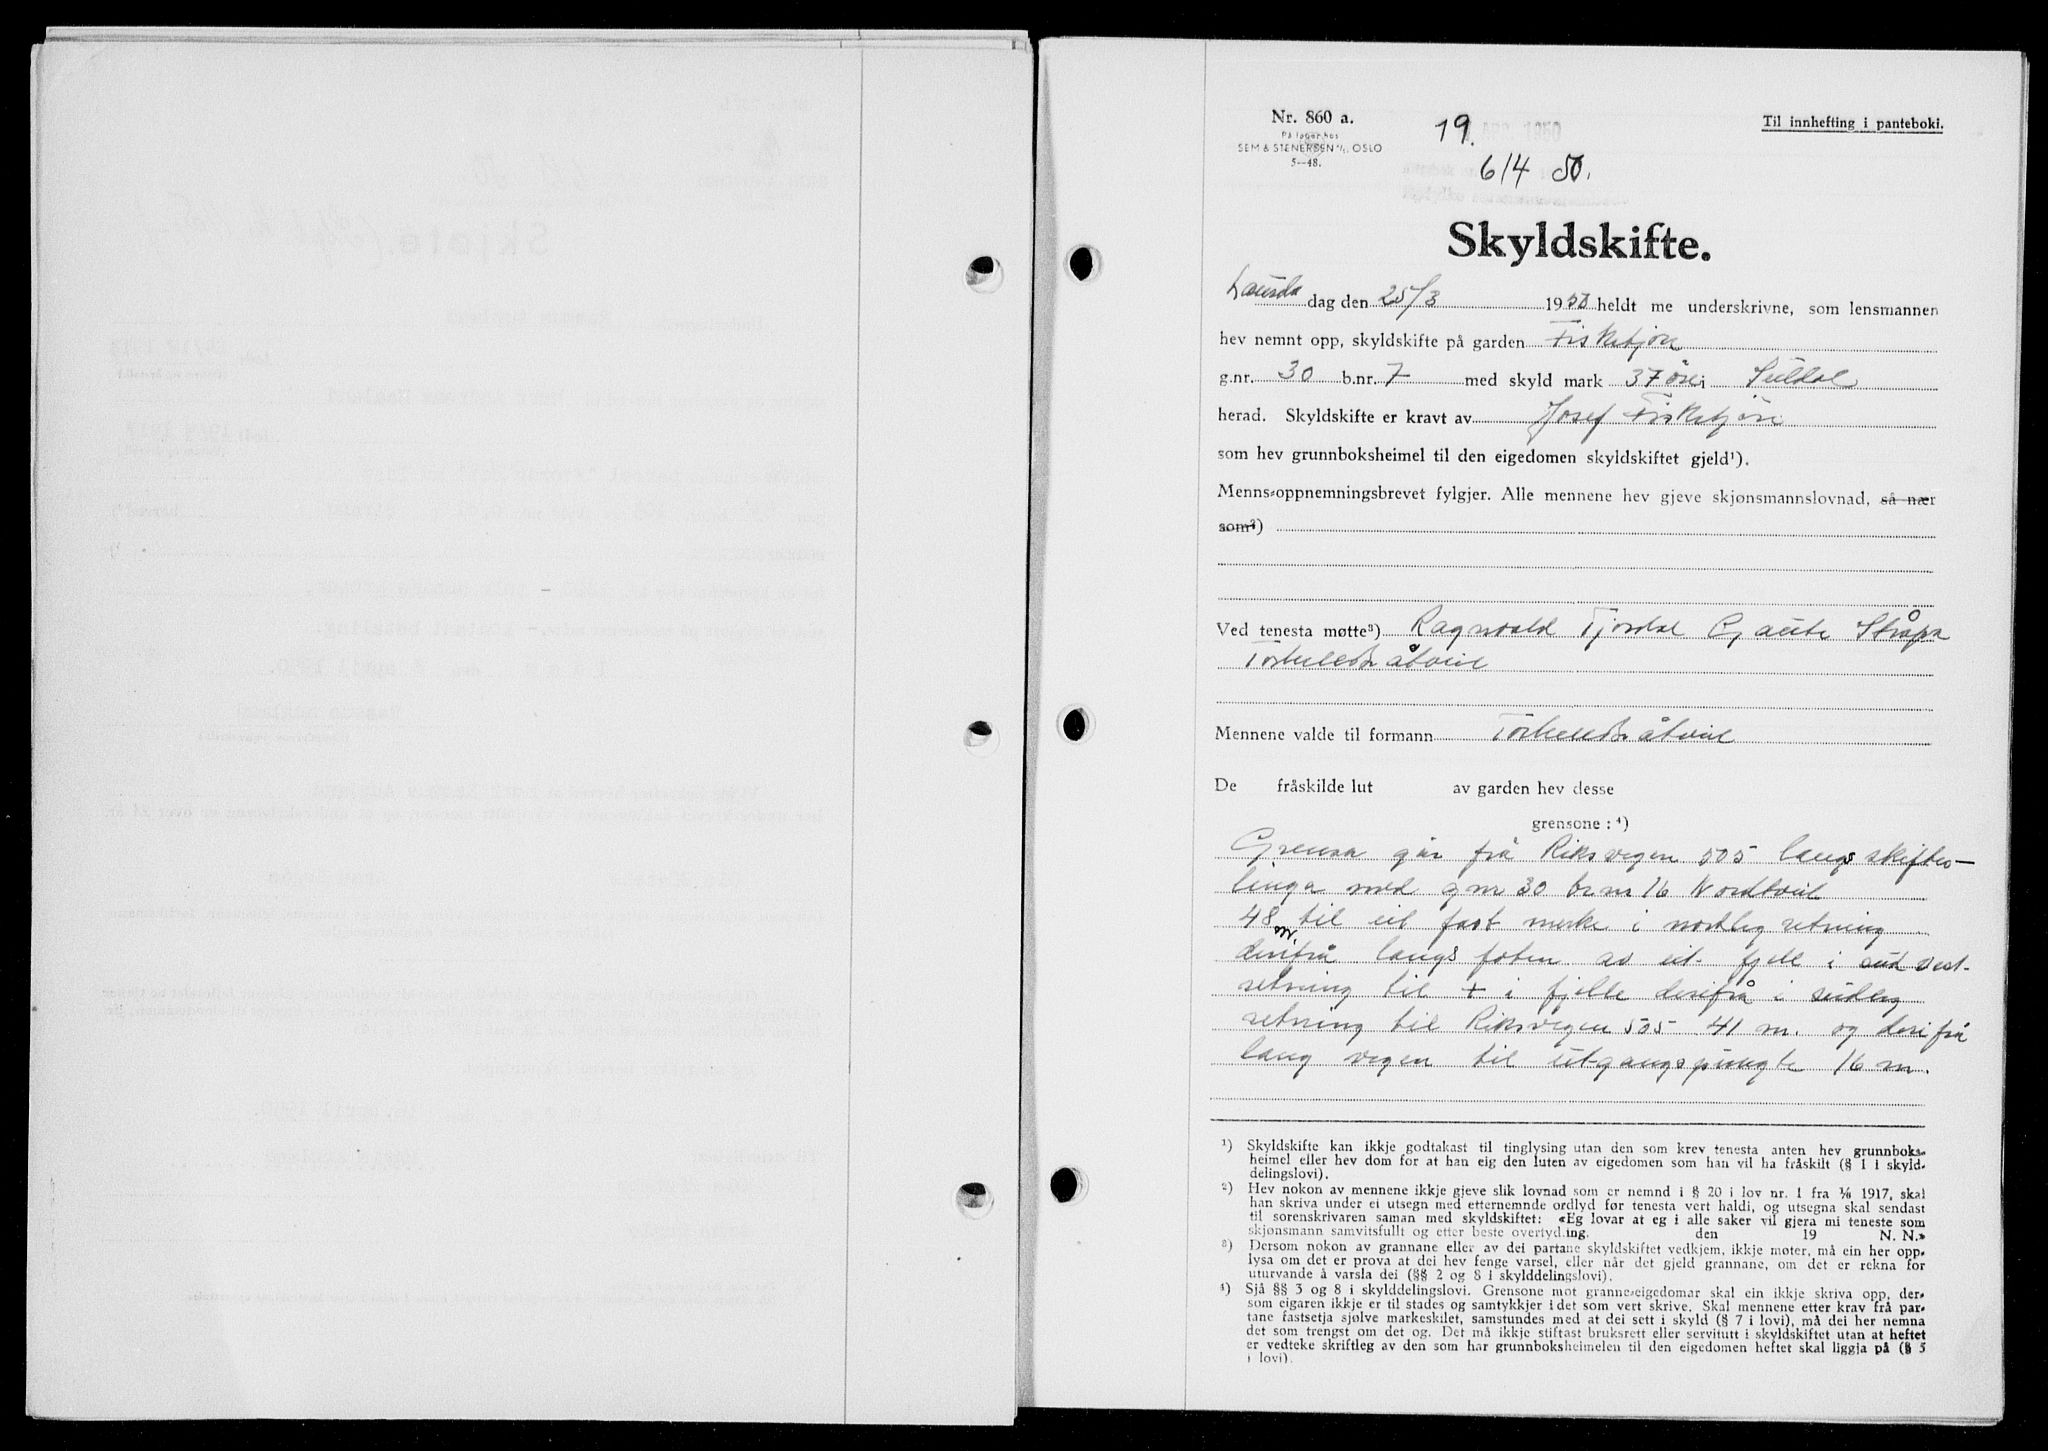 Nr. 860 a.
På lager hos
SEM & STENERSEN A/S, OSLO
5—48.
19.
6/4 50.
APR. 1950
Til innhefting i panteboki.
Skyldskifte.
Laurdag den 25/3 1950 heldt me underskrivne, som lensmannen
hev nemnt opp, skyldskifte på garden Fisketjøn
g.nr. 30 b.nr. 7 med skyld mark 37 øre i Suldal
herad. Skyldskifte er kravt av Josef Fisketjøn
som hev grunnboksheimel til den eigedomen skyldskiftet gjeld¹).
Menns-oppnemningsbrevet fylgjer. Alle mennene hev gjeve skjønsmannslovnad, så nær
som²)
Ved tenesta møtte³) Ragnvald Gaute Stråpa
Mennene valde til formann
De fråskilde lut av garden hev desse
grensone : ⁴)
Grensa går frå Riksvegen 505 langs skiftes-
linja med gnr 30 brnr 16 Nordtveit
48 m. til eit fast merke i nordleg retning
derifrå langs foten av eit fjell i sud vest-
retning til + i fjelle derifrå i sudleg
retning til Riksvegen 505 41 m. og derifrå
lang vegen til utgangspungte 16 m.
¹) Skyldskifte kan ikkje godtakast til tinglysing utan den som krev tenesta anten hev grunnboks-
heimel eller hev dom for at han eig den luten av eigedomen som han vil ha fråskilt (§ 1 i skyld-
delingslovi).
²) Hev nokon av mennene ikkje gjeve slik lovnad som er nemnd i § 20 i lov nr. 1 fra 1/6 1917, skal
han skriva under ei utsegn med etternemnde ordlyd før tenesta vert haldi, og utsegna skal sendast
til sorenskrivaren saman med skyldskiftet: «Eg lovar at eg i alle saker vil gjera mi teneste som
skjønsmann samvitsfullt og etter beste overtyding. den 19 N. N.»
³) Dersom nokon av grannane eller av dei partane skyldskiftet vedkjem, ikkje møter, må ein her opp-
lysa om det er prova at dei hev fenge varsel, eller når det gjeld grannane, om det er rekna for
uturvande å varsla dei (§§ 2 og 8 i skylddelingslovi).
⁴) Sjå §§ 3 og 8 i skylddelingslovi. Grensone mot granne-eigedomar skal ein ikkje skriva opp, der-
som eigaren ikkje er til stades og samtykkjer i det som vert skrive. Skal mennene etter krav frå par-
tane fastsetja sjølve markeskilet, samstundes med at dei sett i skyld (§ 7 i lovi), må dei her nemna
det som trengst om det og. Det må ikkje stiftast bruksrett eller servitutt i skyldskiftet utan at heftet
er vedteke skriftleg av den som har grunnboksheimelen til den eigedomen heftet skal liggja på (§ 5
i lovi).